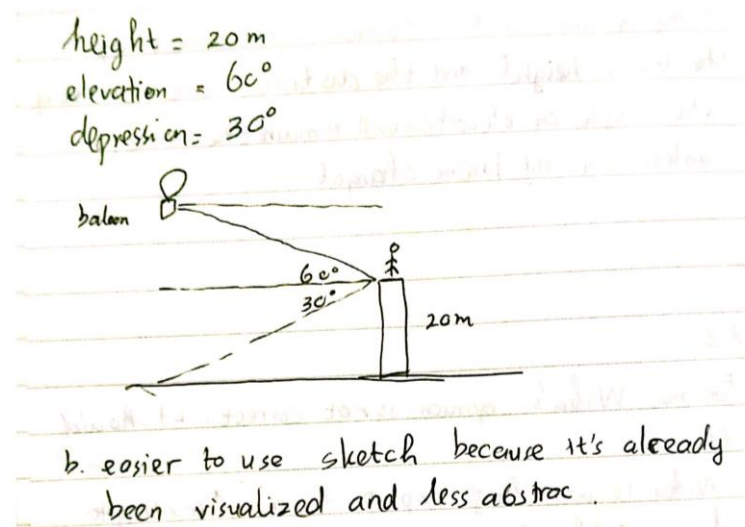 height = 20 m
elevation = 60°
depression = 30°
baloon
60°
30°
20m
b. easier to use sketch because it's already
been visualized and less abstrac.